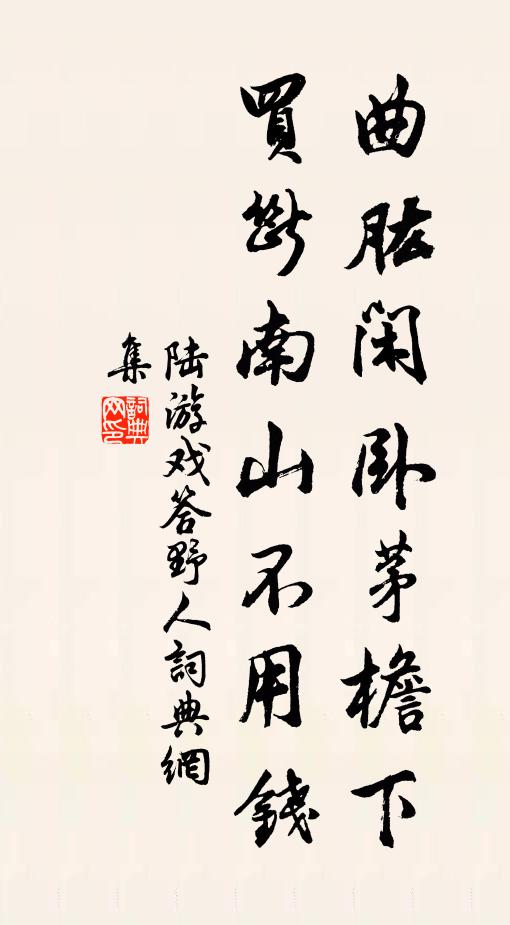 曲肱闲卧茅檐下
買斷南山不用錢
陆游戏答野人詞典網
集
詞典网印